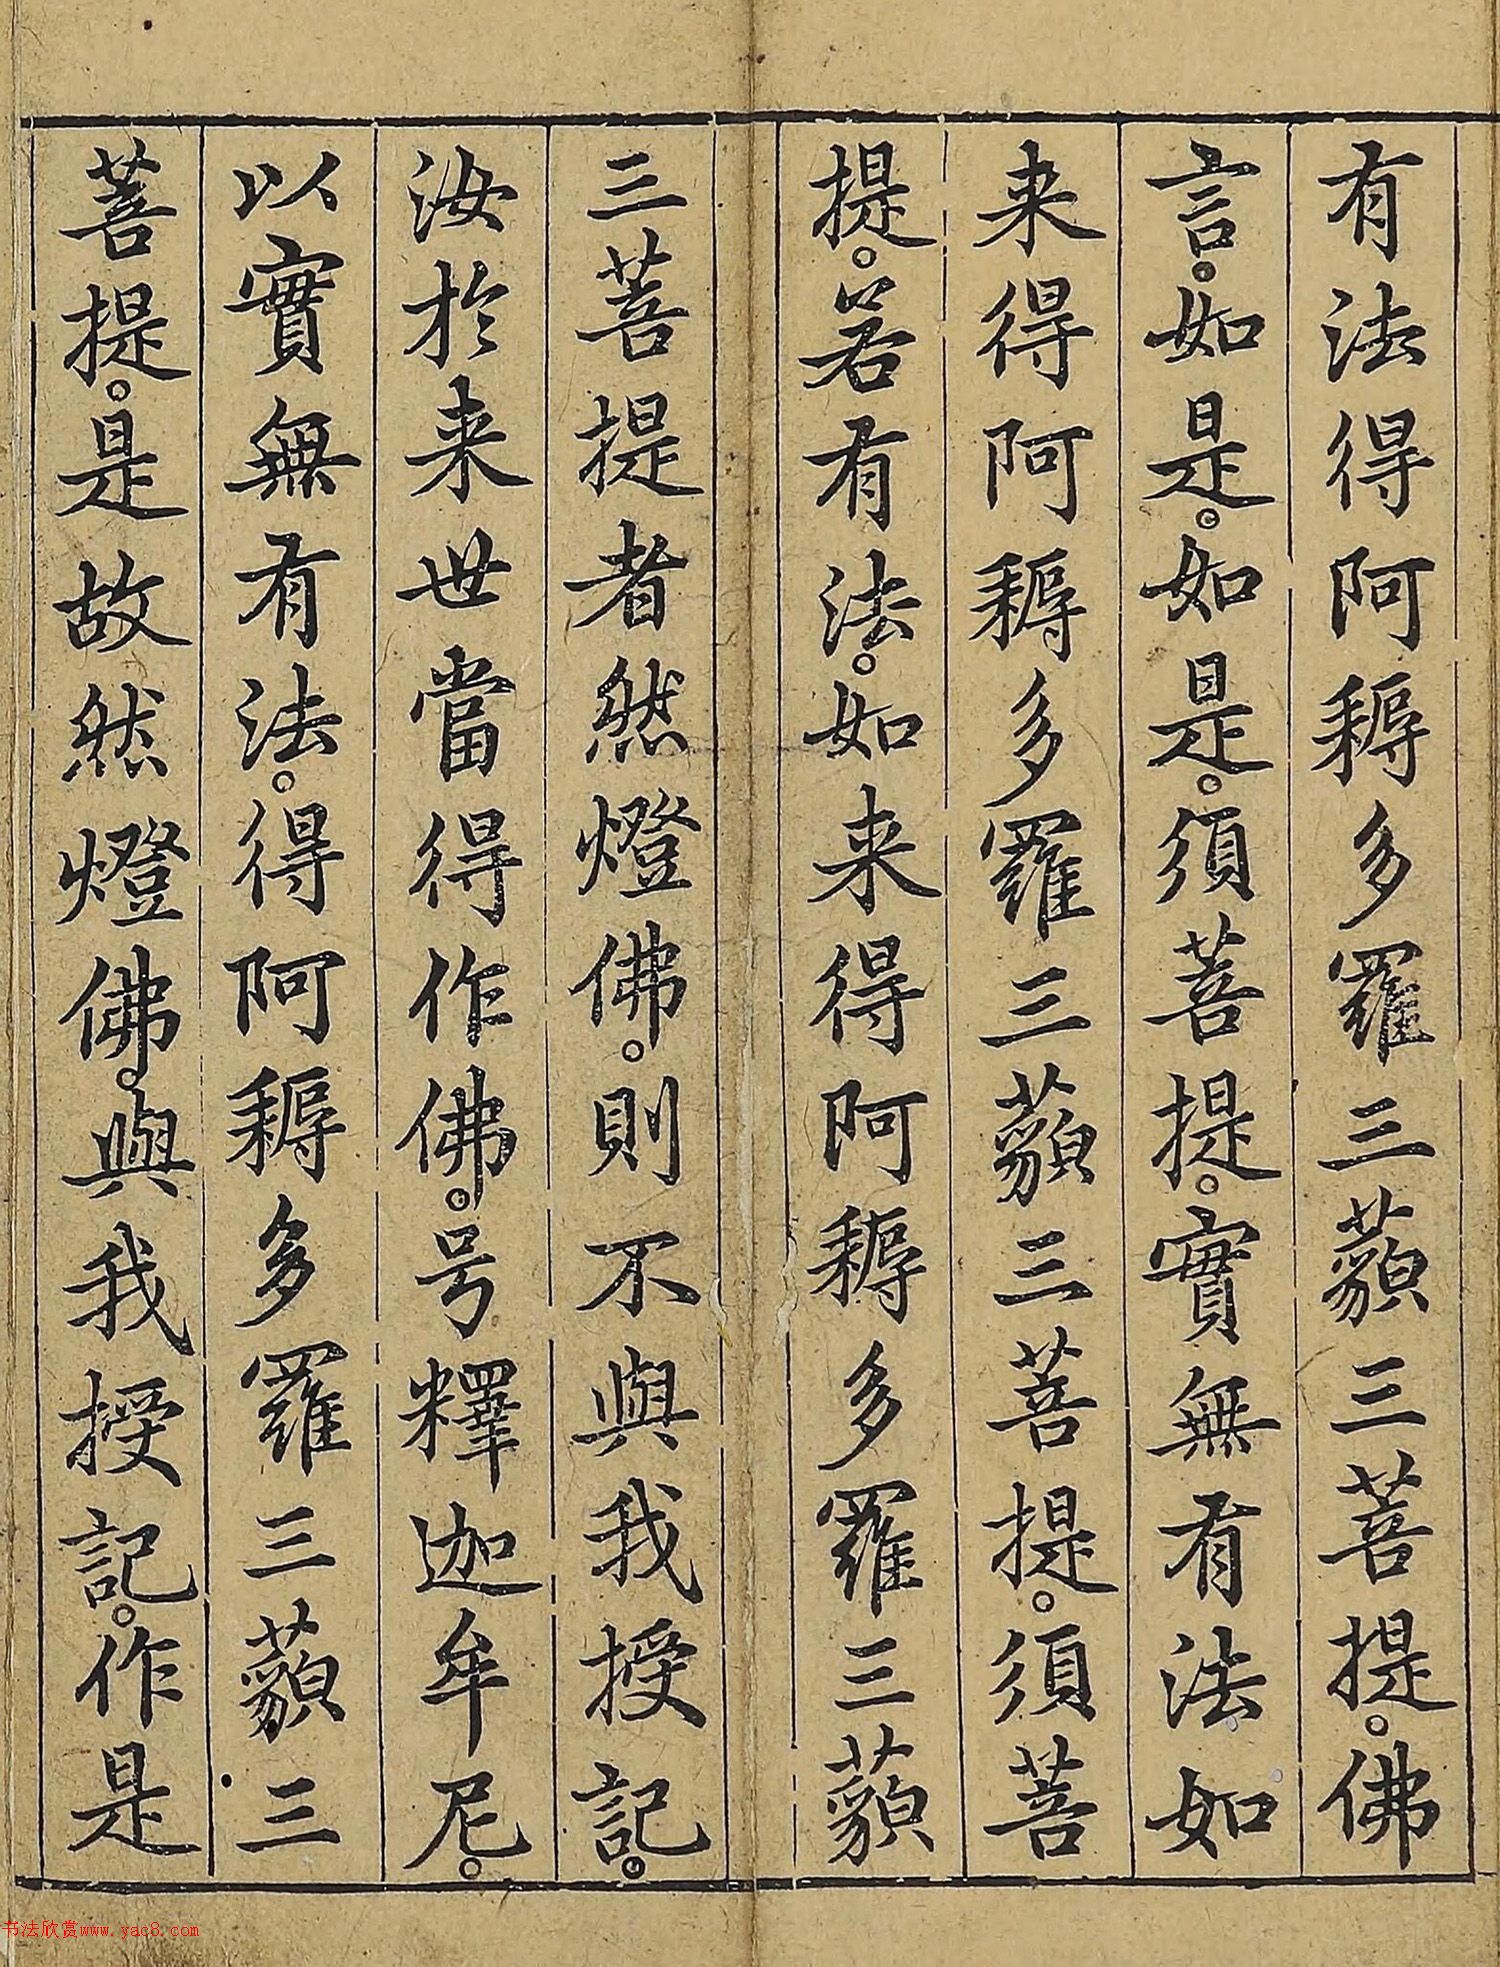 有法得阿耨多羅三藐三菩提。佛
言。如是。如是。須菩提。實無有法如
来得阿耨多羅三藐三菩提。須菩
提。若有法。如来得阿耨多羅三藐
三菩提者然燈佛。則不與我授記。
汝於来世當得作佛。号釋迦牟尼。
以實無有法。得阿耨多羅三藐三
菩提。是故然燈佛。與我授記。作是
书法欣赏www.yac8.com